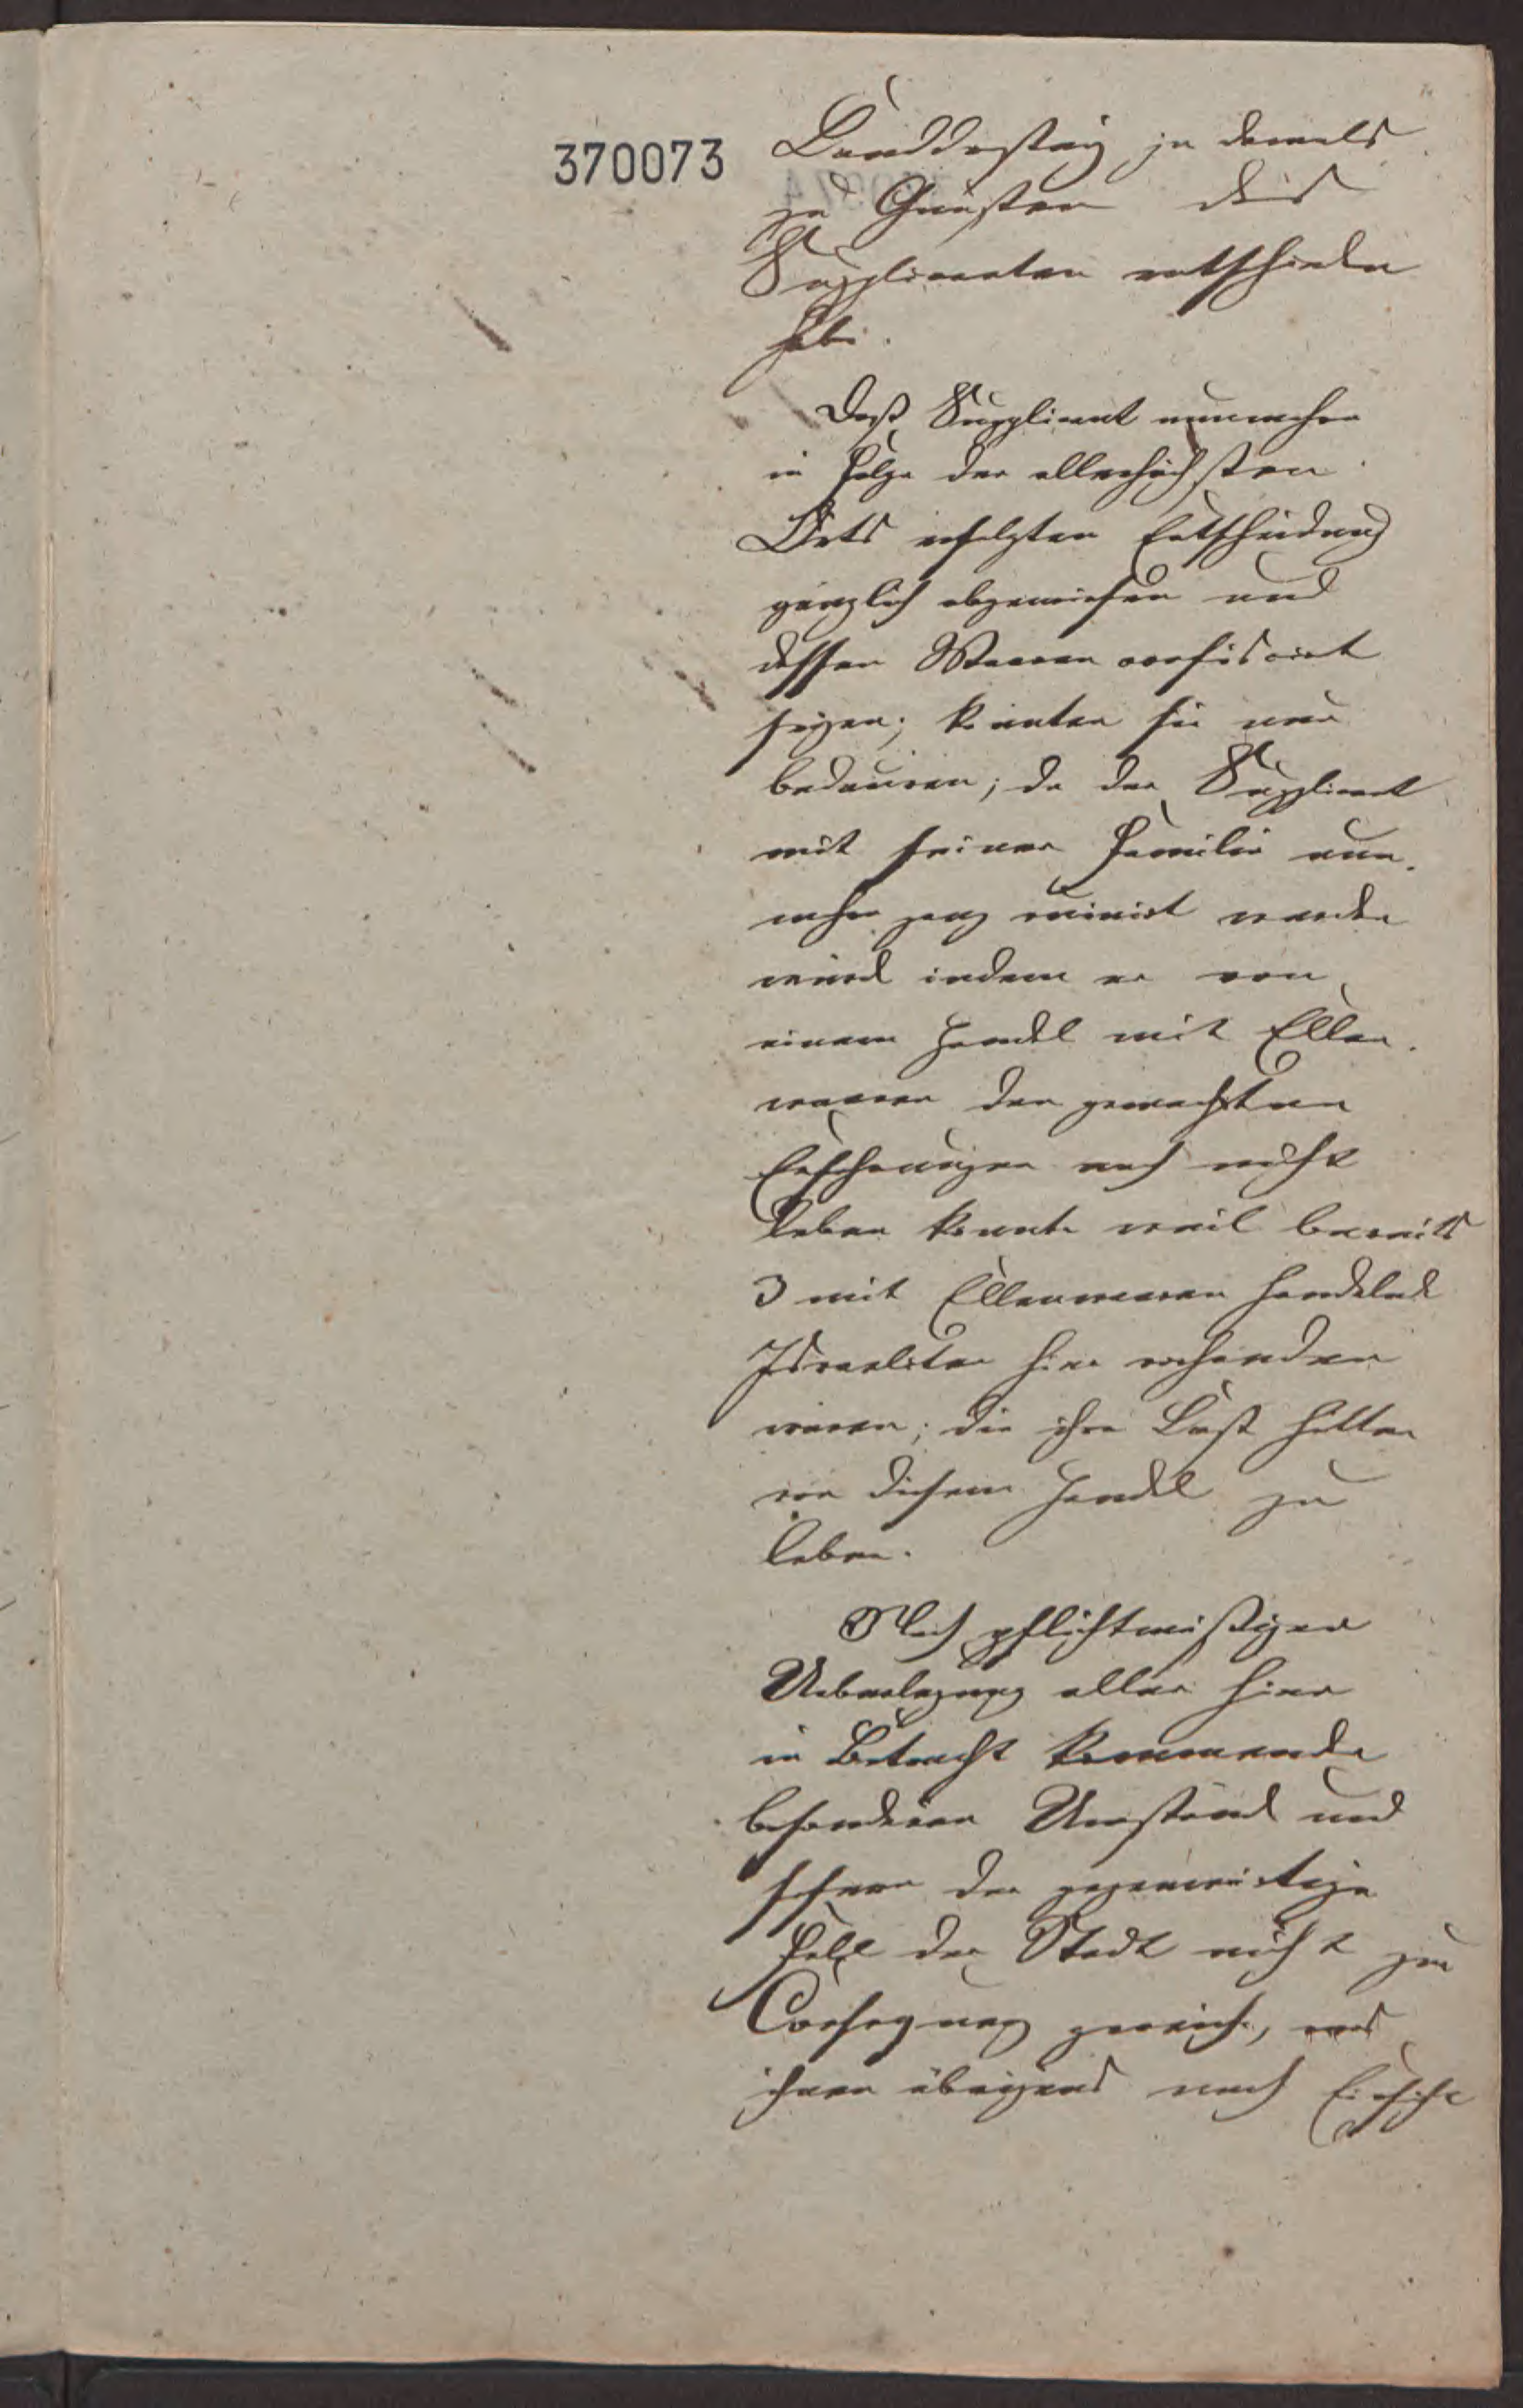 370073
Landdrostey ja damals
zu Gunsten des
Supplicanten entschieden
habe.
Daß Supplicant nunmehro
in Folge der allerhöchsten
Orts erfolgten Entscheidung
gänzlich abgewiesen und
dessen Waaren confiscirt
seyen; könnten sie nur
bedauren; da der Supplicant
mit seiner Familie nun-
mehr ganz ruinirt werden
würde indem er von
einem Handel mit Ellen-
waaren den gemachten
Erfahrungen nach nicht
leben könnte weil bereits
3 mit Ellenwaaren handelnde
Israeliten hier vorhanden
wären; die ihre Last hätten
von diesem Handel zu
leben.
Nach pflichtmäßiger
Ueberlegung aller hier
in Betracht kommenden
besonderen Umstände und
sofern der gegenwärtige
Fall der Stadt nicht zur
Consequenz gereiche, was
ihnen übrigens nach Einsicht